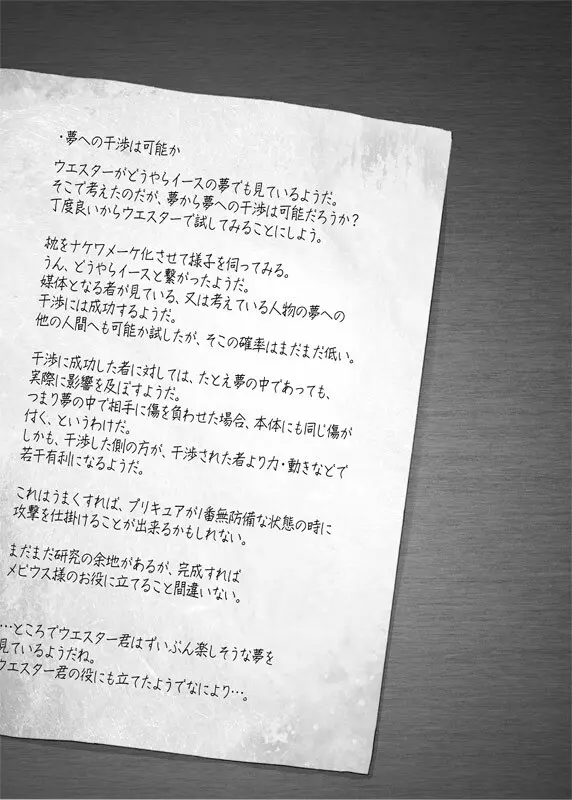 ・夢への干渉は可能か
ウエスターがどうやらイースの夢でも見ているようだ。
そこで考えたのだが、夢から夢への干渉は可能だろうか？
丁度良いからウエスターで試してみることにしよう。
枕をナケワメーケ化させて様子を伺ってみる。
うん、どうやらイースと繋がったようだ。
媒体となる者が見ている、又は考えている人物の夢への
干渉には成功するようだ。
他の人間へも可能か試したが、そこの確率はまだまだ低い。
干渉に成功した者に対しては、たとえ夢の中であっても、
実際に影響を及ぼすようだ。
つまり夢の中で相手に傷を負わせた場合、本体にも同じ傷が
付く、というわけだ。
しかも、干渉した側の方が、干渉された者より力・動きなどで
若干有利になるようだ。
これはうまくすれば、プリキュアが1番無防備な状態の時に
攻撃を仕掛けることが出来るかもしれない。
まだまだ研究の余地があるが、完成すれば
メビウス様のお役に立てること間違いない。
…ところでウエスター君はずいぶん楽しそうな夢を
見ているようだね。
ウエスター君の役にも立てたようでなにより…。